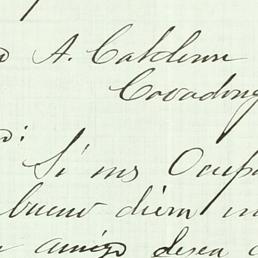 A. Calderon
Covadong
Si ms Ocup
bueno diera
amigo desea